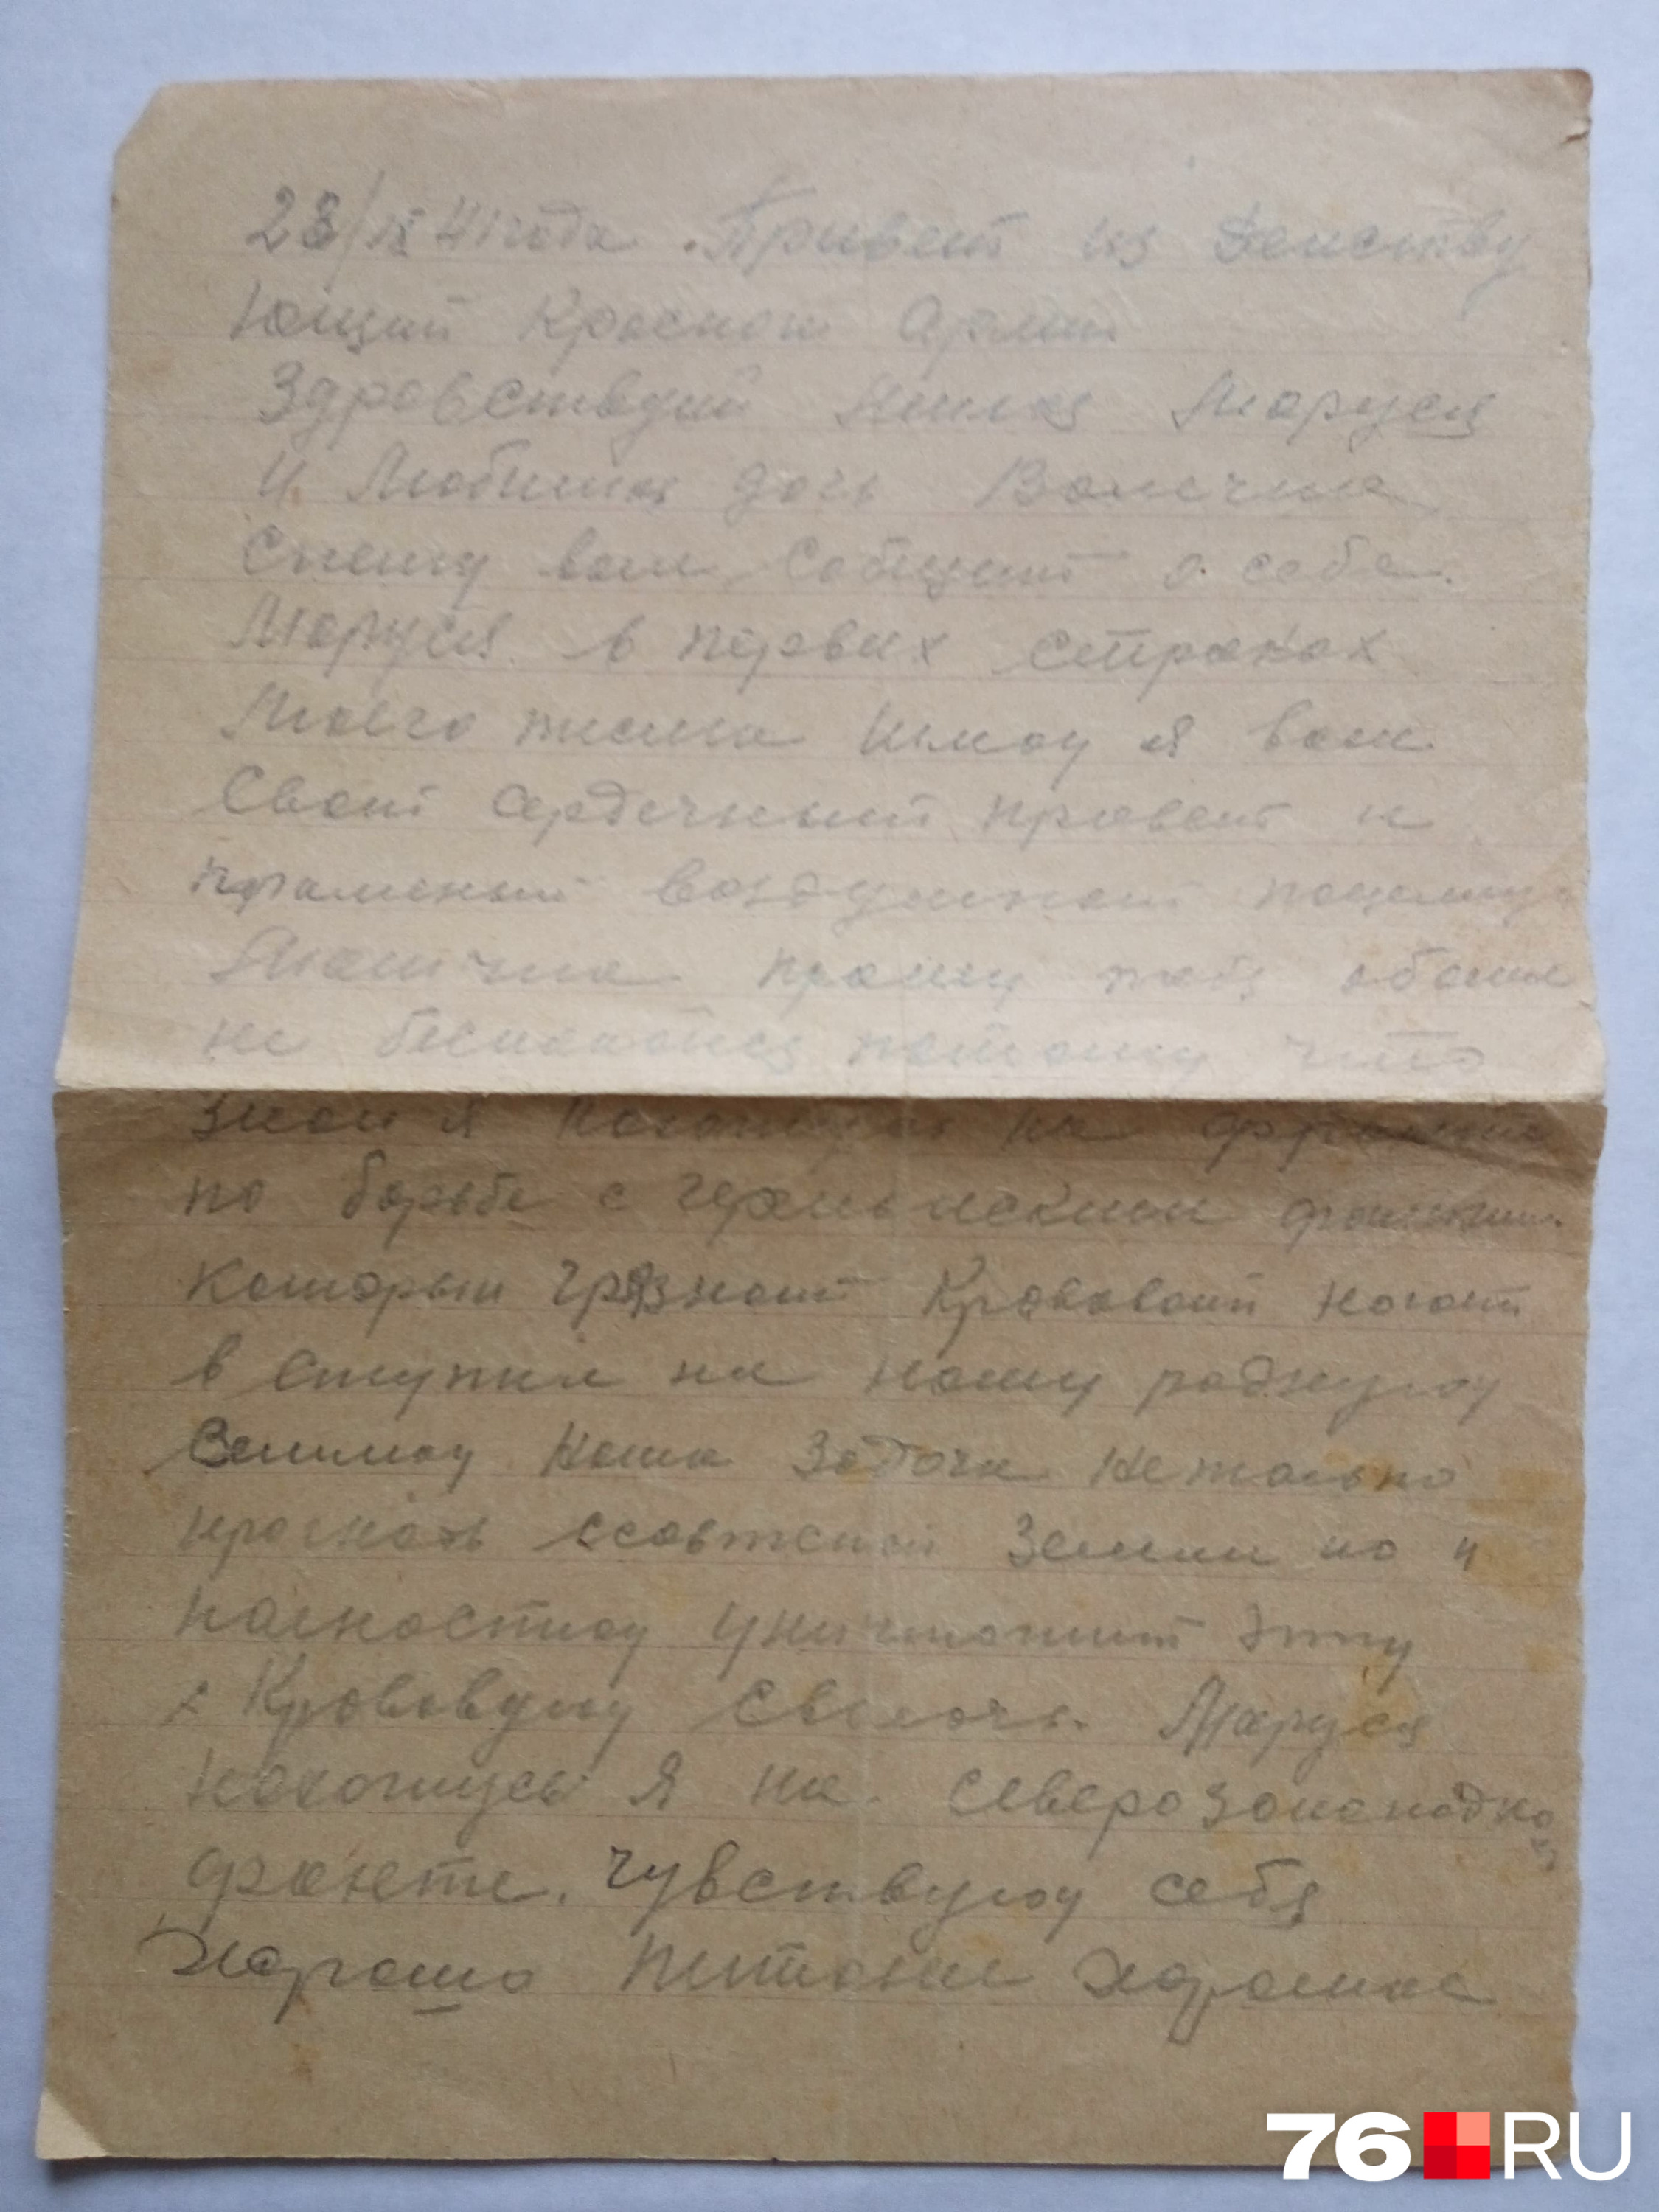 41 года. Привет из Действу
ющий Красной Армии
Здравствуй Милая Маруся
И Любимая дочь Валечка
Спешу вам Собщит о себе.
Маруся в первых строках
Моего писма Шлю я вам
Свой сердечный превет и
праменый воздушной поцелуй
Милечка прошу тебя обомне
не беспокойся потому что
я нахожусь на фронте
по борьбе с германскими
который грязной Кровавой ногой
в ступил на нашу роднуюу
Землюу Наша Задача не только
прогнать ссоветской Земли но и
полностюу уничтожит этту
Крововуюу Сволочь. Маруся
нахожусь Я на. северозападно
м
фронте. чувствуюу себя
Харошо Питание Харошое
76 RU